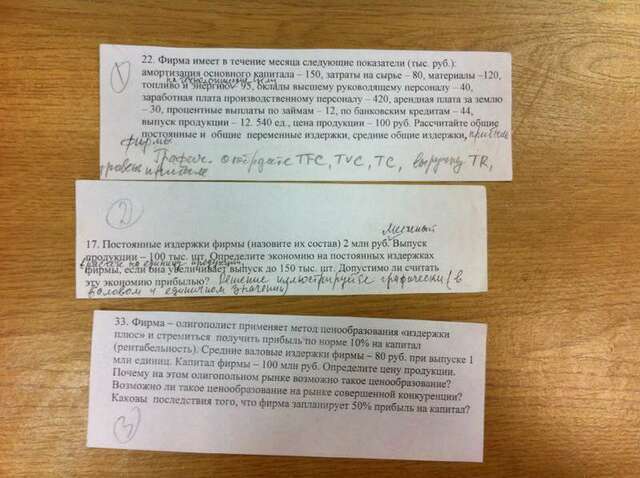 1
22. Фирма имеет в течение месяца следующие показатели (тыс. руб.):
амортизация основного капитала – 150, затраты на сырье – 80, материалы –120,
на технологические цели
топливо и энергию – 95, оклады высшему руководящему персоналу – 40,
заработная плата производственному персоналу – 420, арендная плата за землю
– 30, процентные выплаты по займам – 12, по банковским кредитам – 44,
выпуск продукции – 12. 540 ед., цена продукции – 100 руб. Рассчитайте общие
постоянные и общие переменные издержки, средние общие издержки, прибыль
фирмы
TFC, TVC, TC, выручку TR,
прибыли
2
Месячный
17. Постоянные издержки фирмы (назовите их состав) 2 млн руб. Выпуск
продукции – 100 тыс. шт. Определите экономию на постоянных издержках
на единицу продукции
фирмы, если она увеличивает выпуск до 150 тыс. шт. Допустимо ли считать
эту экономию прибылью? Решение иллюстрируйте графически (в
валовом и единичном значении)
33. Фирма – олигополист применяет метод ценообразования «издержки
плюс» и стремиться получить прибыль по норме 10% на капитал
(рентабельность). Средние валовые издержки фирмы – 80 руб. при выпуске 1
млн единиц. Капитал фирмы – 100 млн руб. Определите цену продукции.
Почему на этом олигопольном рынке возможно такое ценообразование?
Возможно ли такое ценообразование на рынке совершенной конкуренции?
Каковы последствия того, что фирма запланирует 50% прибыль на капитал?
3